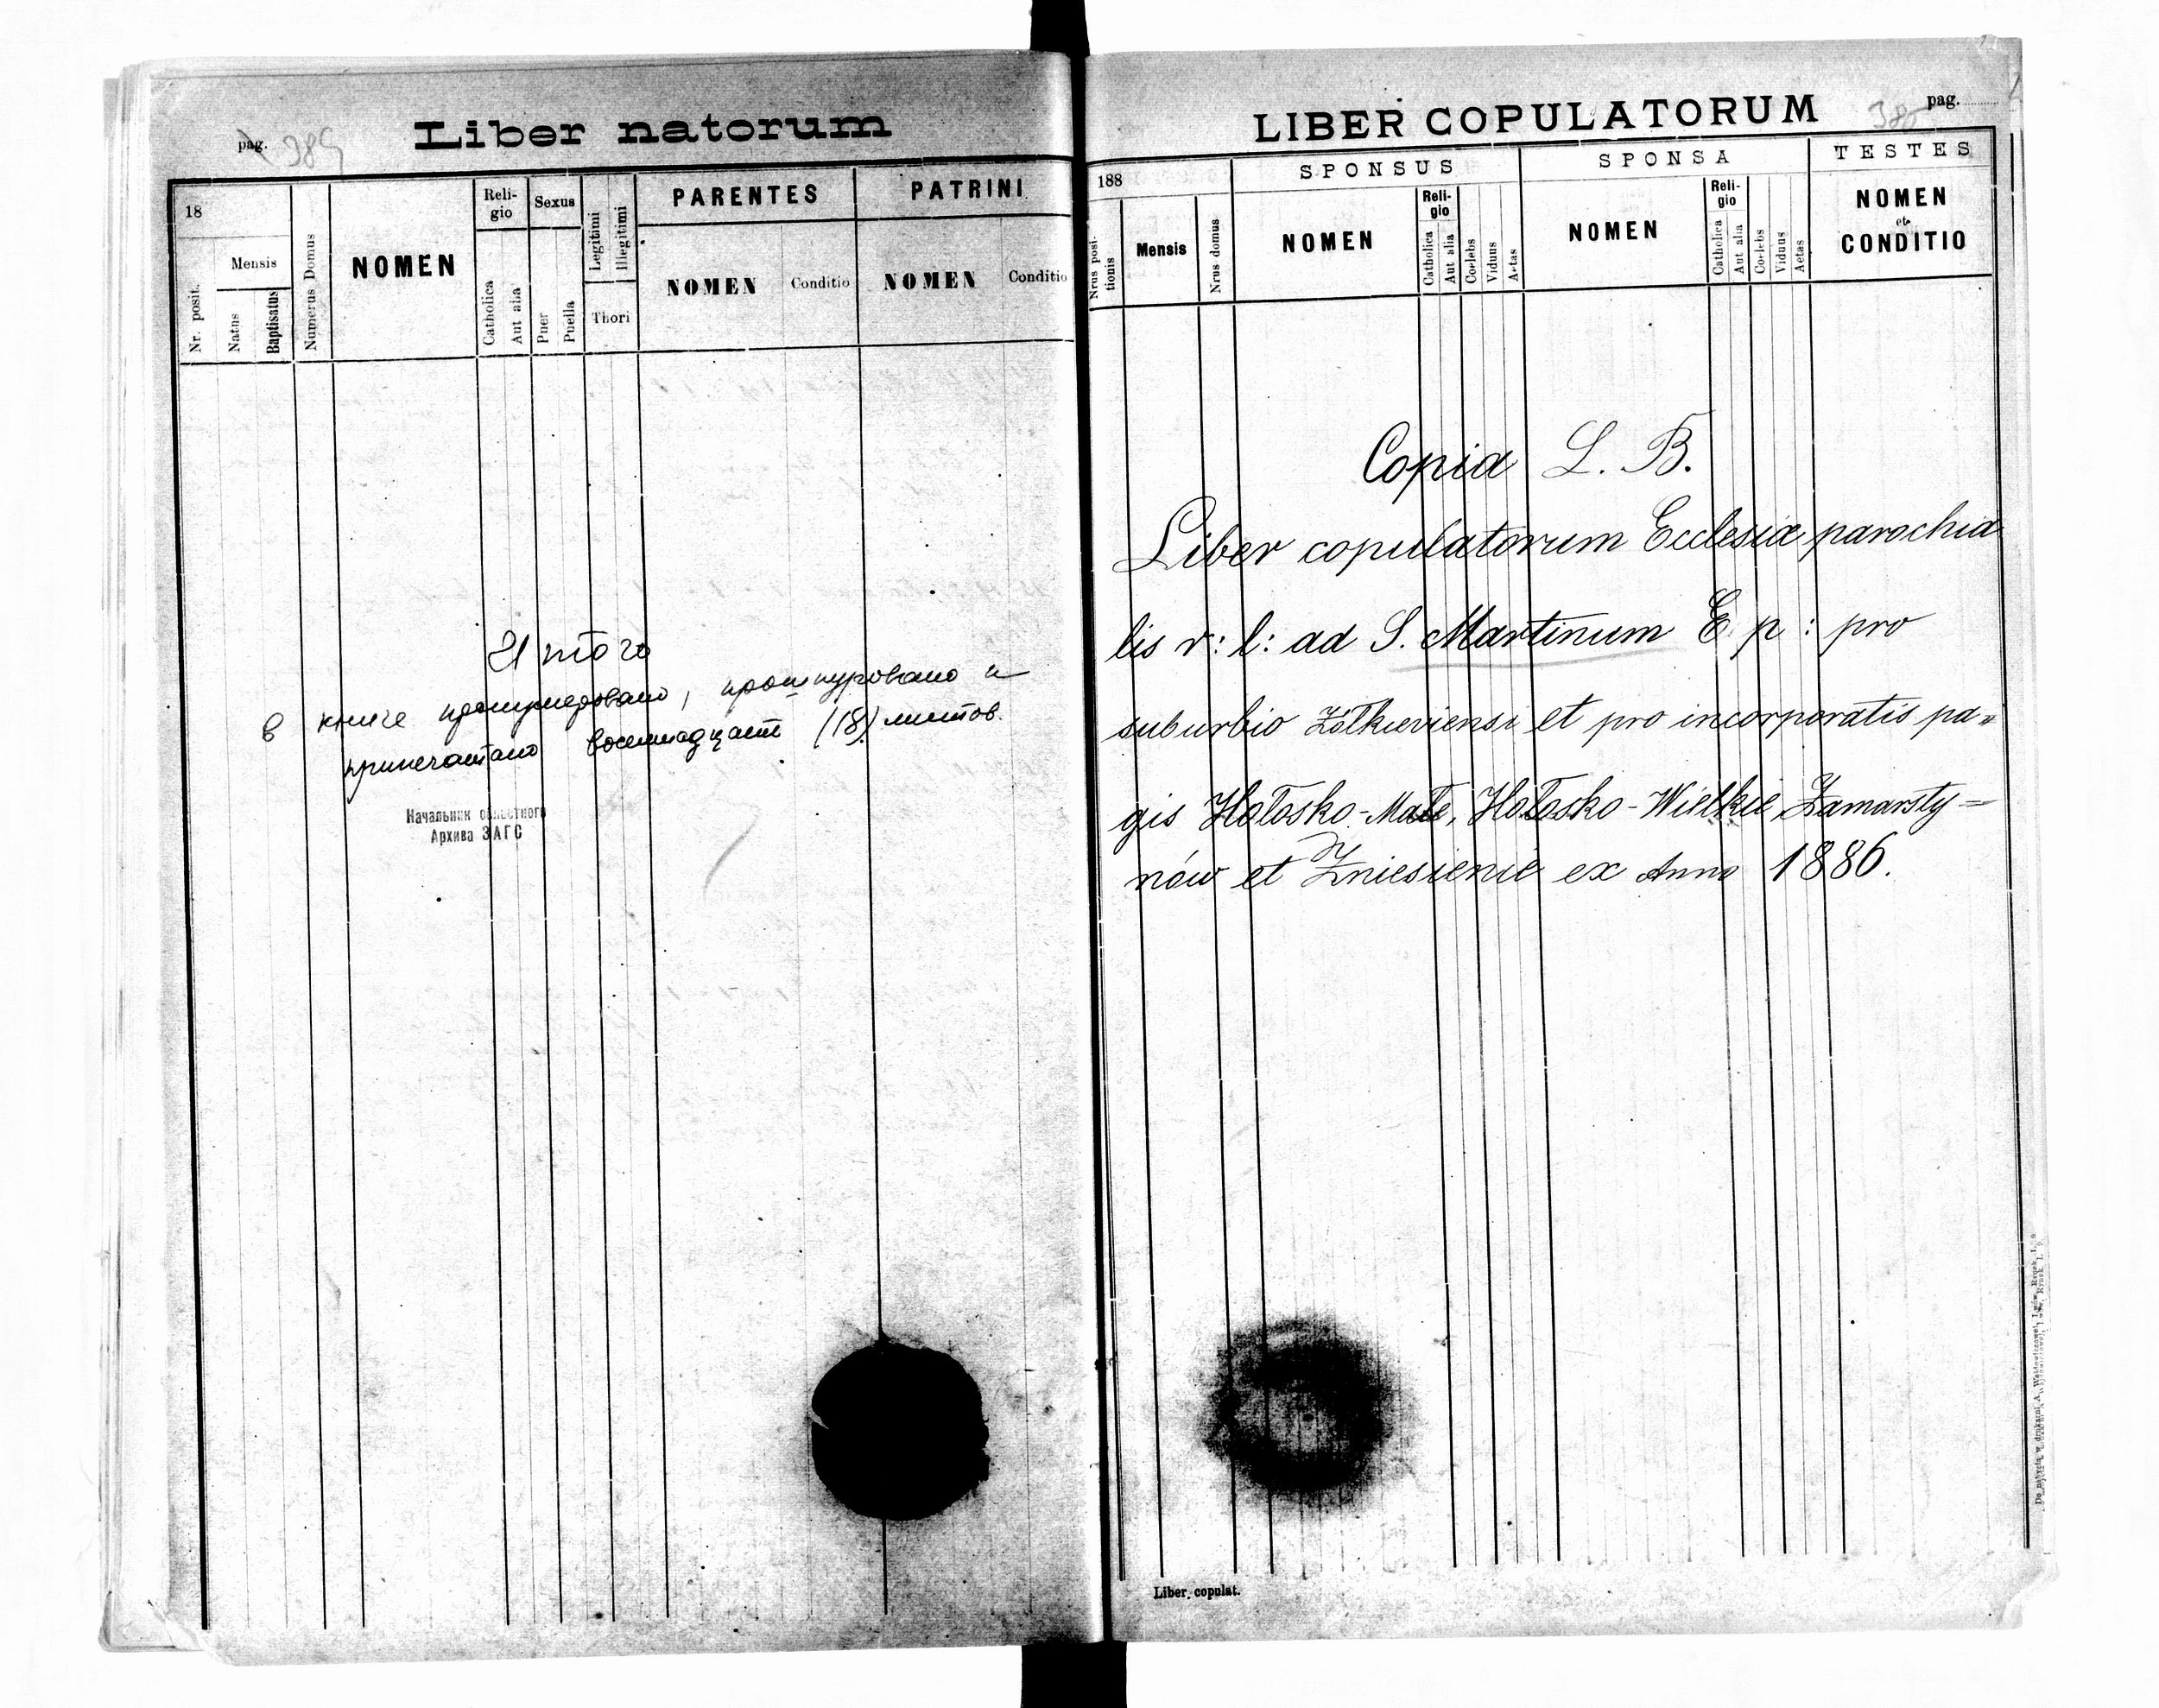 pag. 385
Liber natorum
18
Nr. posit.
Mensis
Natus
Baptisatus
Numerus Domus
NOMEN
Reli-
gio
Catholica
Aut alia
Sexus
Puer
Puella
Legitimi
Illegitimi
Thori
PARENTES
NOMEN
Conditio
PATRINI
NOMEN
Conditio
в книге пронумеровано, прошнуровано и
припечатано восемнадцать (18) листов.
Начальник областного
Архива ЗАГС
LIBER COPULATORUM
pag.
188
Nrus posi-
tionis
Mensis
Nrus domus
SPONSUS
NOMEN
Reli-
gio
Catholica
Aut alia
Coelebs
Viduus
Aetas
SPONSA
NOMEN
Reli-
gio
Catholica
Aut alia
Coelebs
Viduus
Aetas
TESTES
NOMEN
et
CONDITIO
Copia L. B.
Liber copulatorum Ecclesiæ parochia
lis r: l: ad S. Martinum E p: pro
suburbio Żółkieviensi et pro incorporatis pa„
gis Hołosko-Małe, Hołosko-Wielkie Zamarsty=
nów et Zniesienie ex Anno 1886.
Liber. copulat.